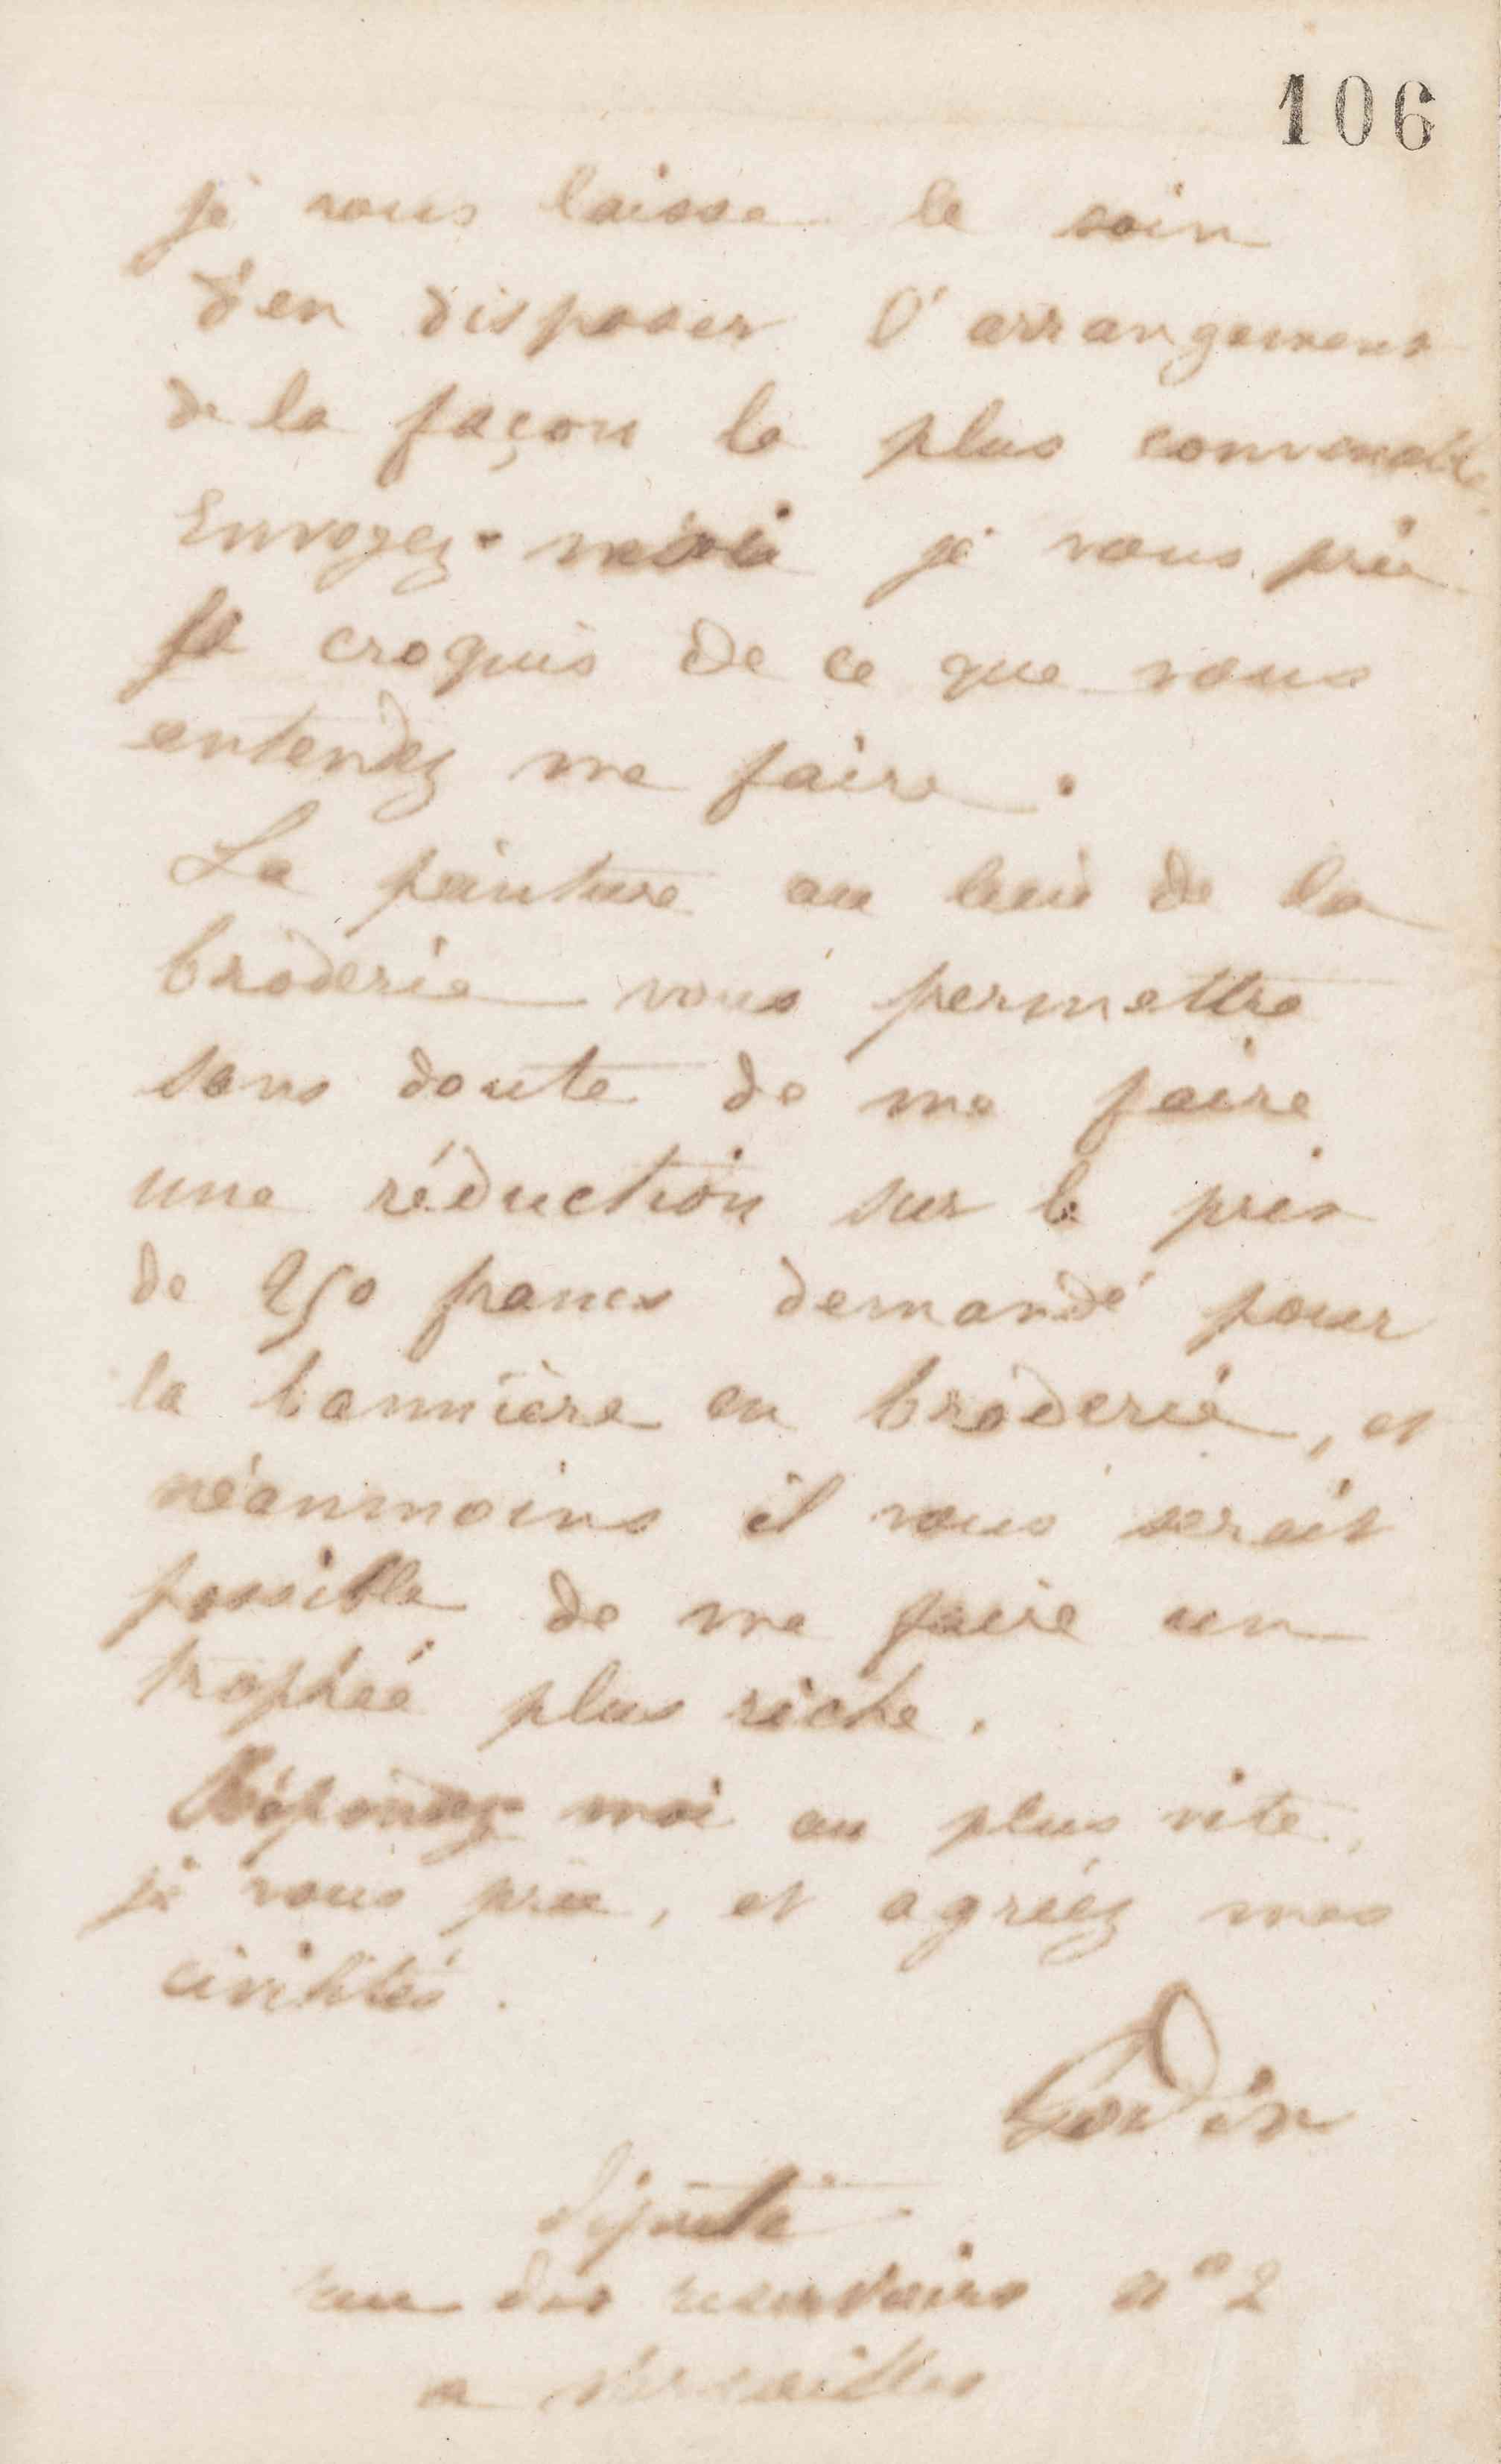 106
je vous laisse le soin
d'en disposer l'arrangement
de la façon la plus convenable
Envoyez-moi je vous prie
le croquis de ce que vous
entendez me faire.
La peinture au lieu de la
broderie vous permettra
sans doute de me faire
une réduction sur le prix
de 250 francs demandé pour
la bannière en broderie, et
néanmoins il vous serait
possible de me faire un
trophée plus riche.
Répondez moi au plus vite,
je vous prie, et agréez mes
civilités.
Godin
député
rue des reservoirs n° 2
a Versailles